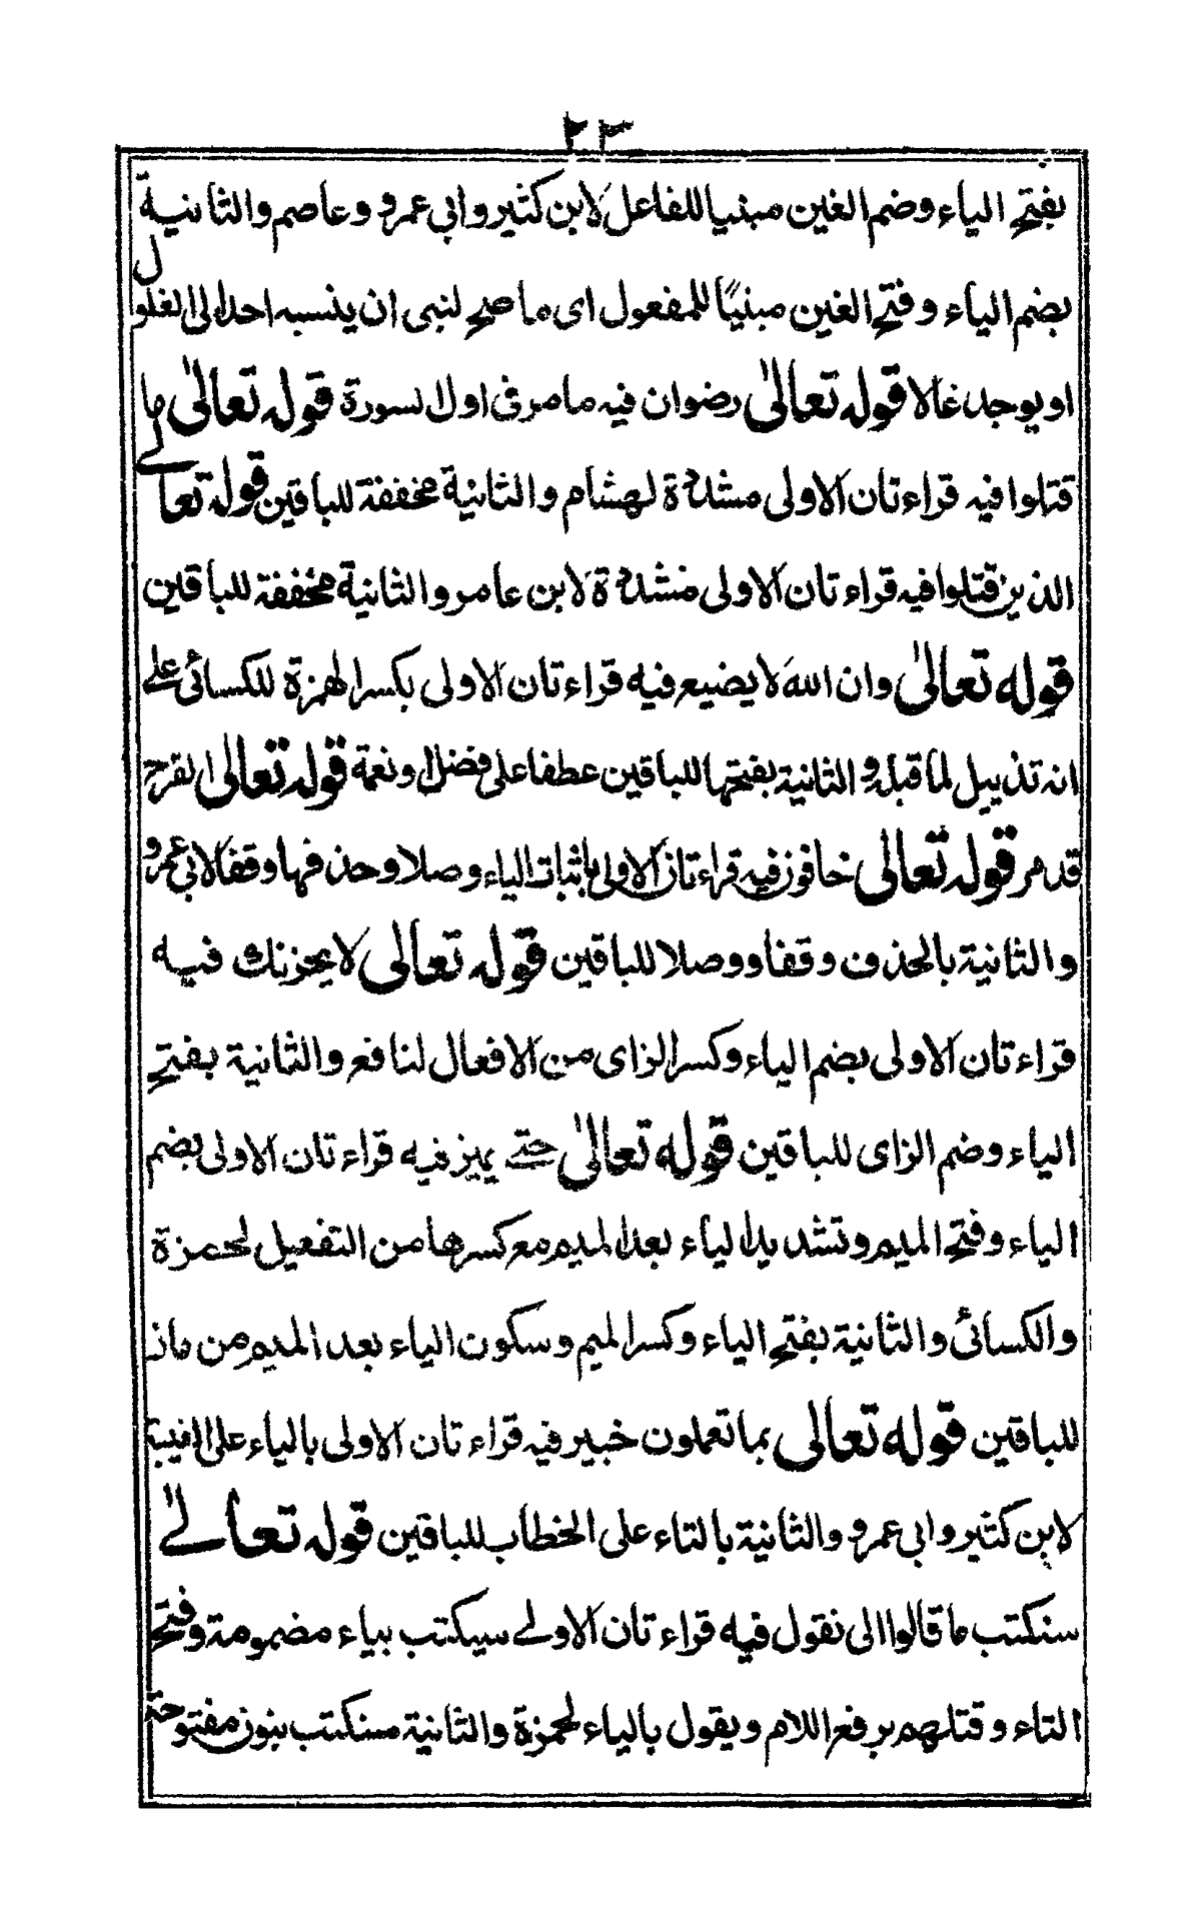 ٢٣
بفتح الياء وضم الغين مبنيا للفاعل لابن كثير وابي عمرو وعاصم والثانية
بضم الياء وفتح الغين مبنيًا للمفعول اى ما صح لنبى ان ينسبه احد الى الغلول
او يوجد غالا قوله تعالىٰ رضوان فيه ما مر فى اول لسورة قوله تعالىٰ ما
قتلوا فيه قراءتان الاولى مشددة لهشام والثانية مخففة للباقين قوله تعالے
الذين قتلوا فيه قراءتان الاولى مشددة لابن عامر والثانية مخففة للباقين
قوله تعالىٰ وان الله لا يضيع فيه قراءتان الاولى بكسر الهمزة للكسائى علے
انه تذييل لما قبله والثانية بفتحها للباقين عطفا على فضل ونعمة قوله تعالى القرح
قد مر قوله تعالى خافون فيه قراءتان الاولى باثبات الياء وصلا وحذفها وقفا لابي عمرو
والثانية بالحذف وقفا ووصلا للباقين قوله تعالى لا يحزنك فيه
قراءتان الاولى بضم الياء وكسر الزاى من الافعال لنافع والثانية بفتح
الياء وضم الزاى للباقين قوله تعالىٰ حتے يميز فيه قراءتان الاولى بضم
الياء وفتح الميم وتشديد الياء بعد الميم مع كسرها من التفعيل لحمزة
والكسائى والثانية بفتح الياء وكسر الميم وسكون الياء بعد الميم من ماز
للباقين قوله تعالى بما تعملون خبير فيه قراءتان الاولى بالياء على الغيبة
لابن كثير وابى عمرو والثانية بالتاء على الخطاب للباقين قوله تعالےٰ
سنكتب ما قالوا الى نقول فيه قراءتان الاولے سيكتب بياء مضمومة وفتح
التاء وقتلهم برفع اللام ويقول بالياء لحمزة والثانية سنكتب بنون مفتوحة